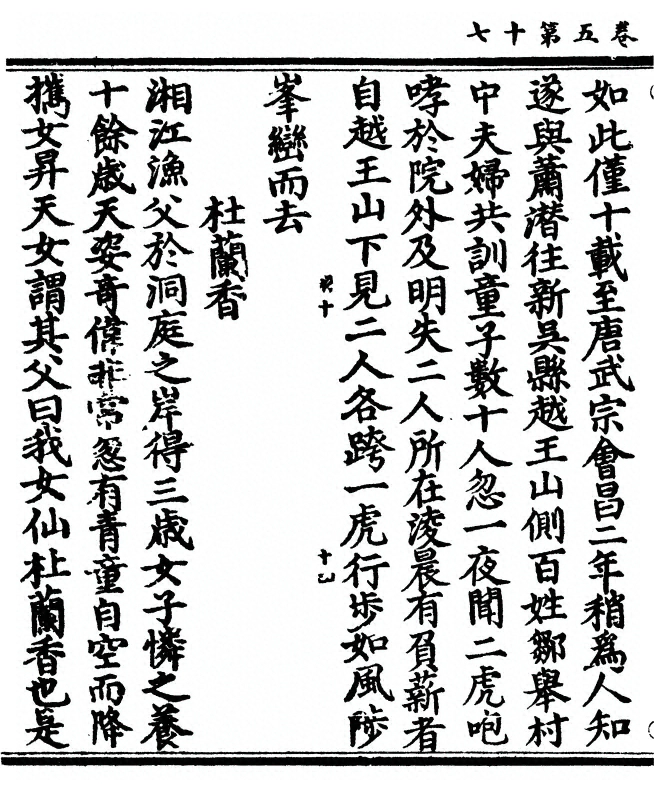 卷五第十七
如此僅十載至唐武宗會昌二年稍爲人知
遂與蕭潛往新吳縣越王山側百姓鄒舉村
中夫婦共訓童子數十人忽一夜聞二虎咆
哮於院外及明失二人所在淩晨有負薪者
自越王山下見二人各跨一虎行步如風陟
峯巒而去
杜蘭香
湘江漁父於洞庭之岸得三歲女子憐之養
十餘歲天姿奇偉非常忽有青童自空而降
攜女昇天女謂其父曰我女仙杜蘭香也是